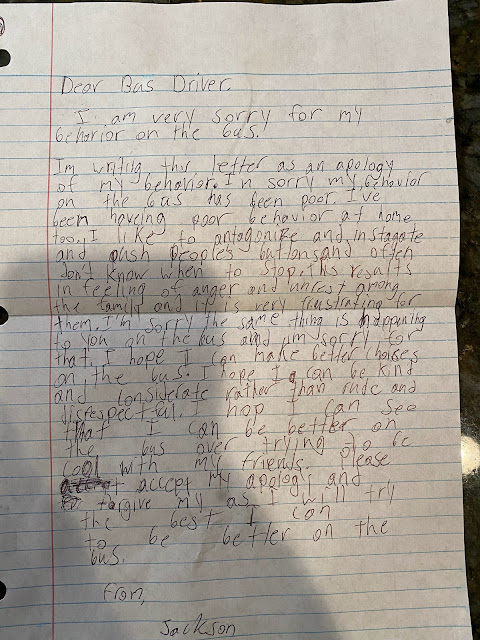 Dear Bus Driver,
I am very sorry for my
behavior on the bus.
Im writing this letter as an apology
of my behavior. I'm sorry my behavior
on the bus has been poor. I've
been haveing poor behavior at home
too. I like to antagonize and instagate
and push people's buttons and often
don't know when to stop. this results
in feeling of anger and unrest among
the family and it is very frustrating for
them. I'm sorry the same thing is happening
to you on the bus and um sorry for
that. I hope I can make better choises
on the bus. I hope I can be kind
and considerate rather than rude and
disrespectful. I hop I can see
that I can be better on
the bus over trying to be
cool with my friends. Please
accept my apology and
forgive my as I will try
the best I can
to be better on the
bus.
From,
Jackson